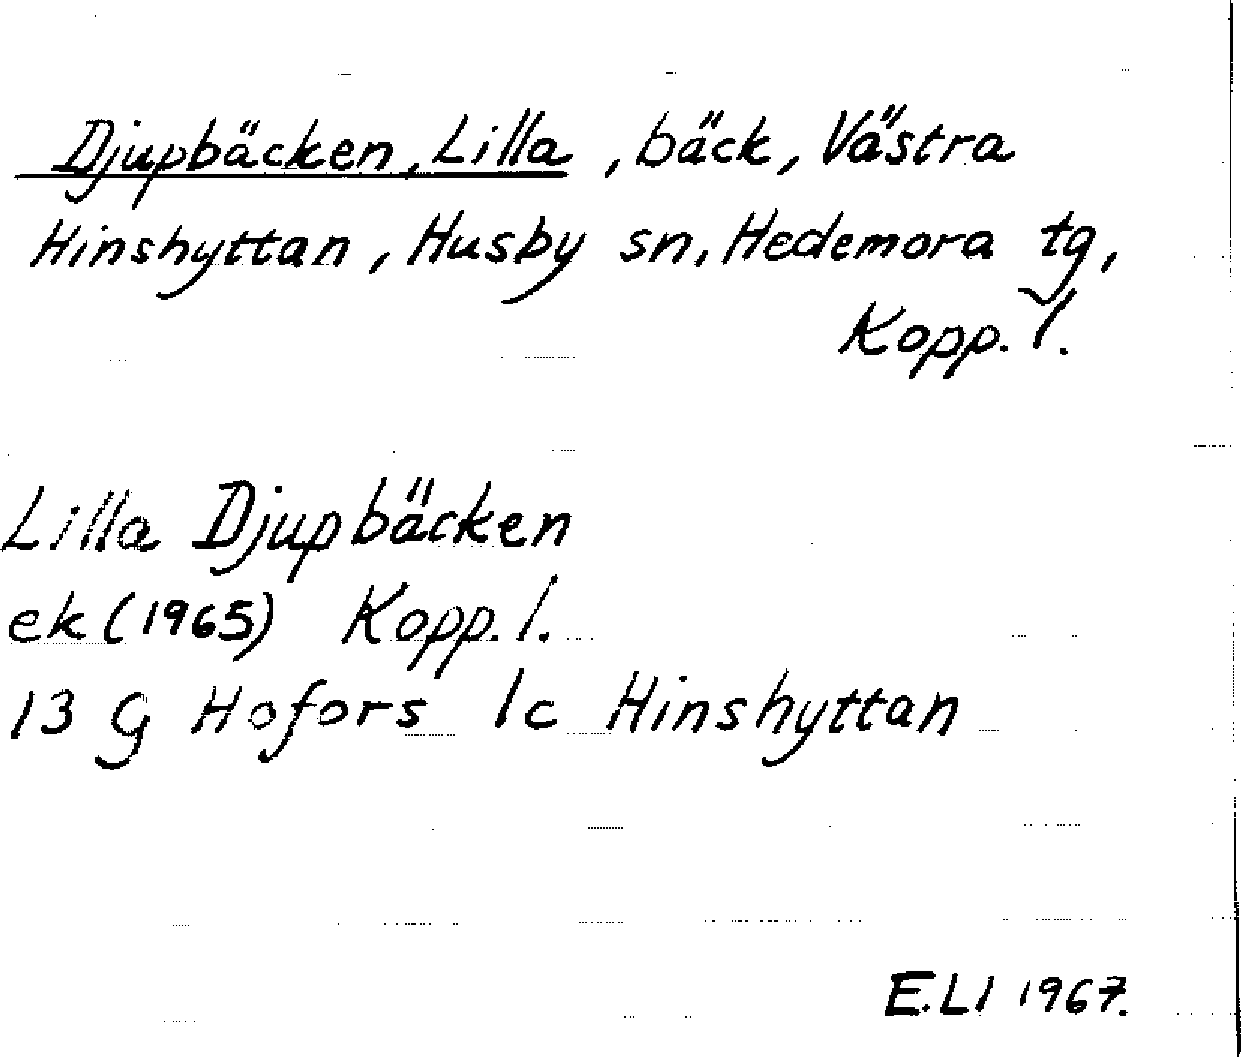 Djupbäcken, Lilla, bäck, Västra
Hinshyttan, Husby sn, Hedemora tg,
Kopp. l.
Lilla Djupbäcken
ek (1965) Kopp. l.
13 G Hofors 1c Hinshyttan
E.LI 1967.